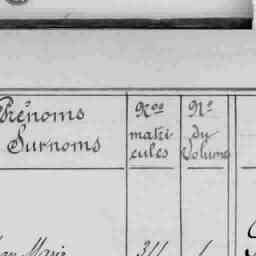 Prénoms
Surnoms
Nos
matri
cules
No
du
Volume